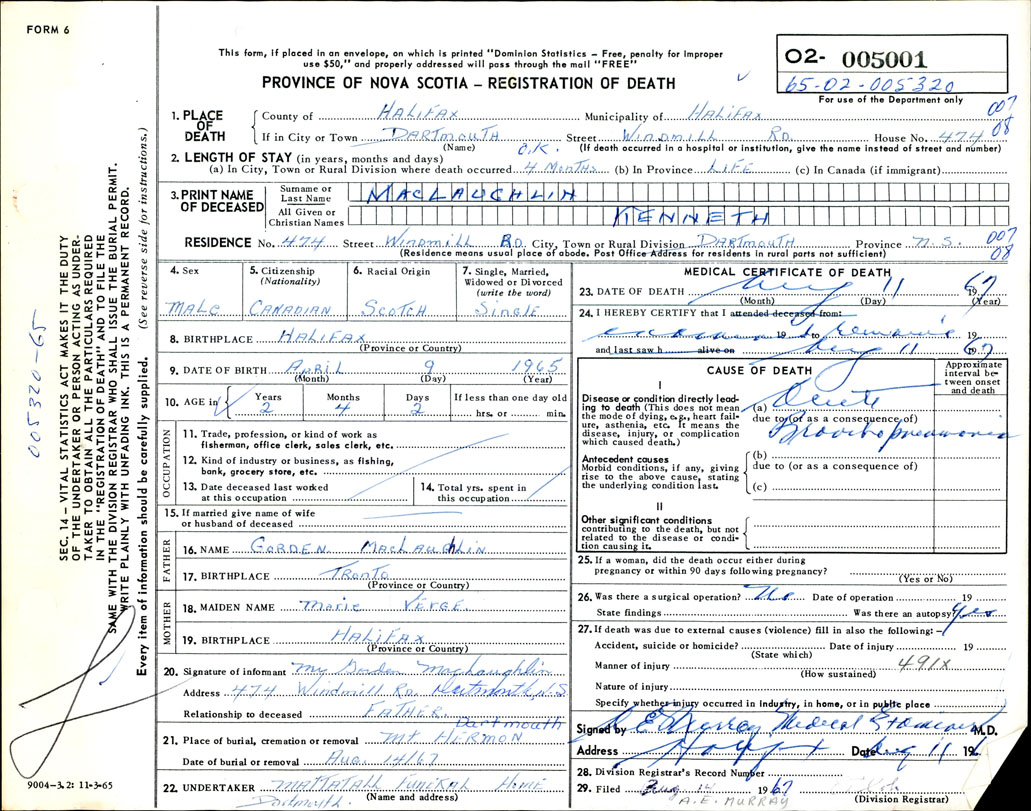 FORM 6
This form, if placed in an envelope, on which is printed "Dominion Statistics – Free, penalty for improper
use $50," and properly addressed will pass through the mail "FREE"
PROVINCE OF NOVA SCOTIA – REGISTRATION OF DEATH
02- 005001
65-02-005320
For use of the Department only
1. PLACE OF DEATH
County of HALIFAX Municipality of HALIFAX 007
If in City or Town DARTMOUTH Street WINDMILL RD House No. 474 08
(Name) (If death occurred in a hospital or institution, give the name instead of street and number)
2. LENGTH OF STAY (in years, months and days) O.K.
(a) In City, Town or Rural Division where death occurred 4 MONTHS (b) In Province LIFE (c) In Canada (if immigrant)
3. PRINT NAME OF DECEASED
Surname or Last Name MACLAUGHLIN
All Given or Christian Names KENNETH
RESIDENCE No. 474 Street WINDMILL RD. City, Town or Rural Division DARTMOUTH Province N.S. 007
(Residence means usual place of abode. Post Office Address for residents in rural parts not sufficient) 08
4. Sex
MALE
5. Citizenship (Nationality)
CANADIAN
6. Racial Origin
SCOTCH
7. Single, Married, Widowed or Divorced (write the word)
SINGLE
8. BIRTHPLACE HALIFAX
(Province or Country)
9. DATE OF BIRTH APRIL 9 1965
(Month) (Day) (Year)
10. AGE in Years Months Days If less than one day old
2 4 2 hrs. or min.
OCCUPATION
11. Trade, profession, or kind of work as
fisherman, office clerk, sales clerk, etc.
12. Kind of industry or business, as fishing,
bank, grocery store, etc.
13. Date deceased last worked
at this occupation
14. Total yrs. spent in
this occupation
15. If married give name of wife
or husband of deceased
FATHER
16. NAME GORDEN MACLAUGHLIN
17. BIRTHPLACE TRONTO
(Province or Country)
MOTHER
18. MAIDEN NAME MARIE VERGE
19. BIRTHPLACE HALIFAX
(Province or Country)
20. Signature of informant Gorden MacLaughlin
Address 474 Windmill Rd. Dartmouth, N.S
Relationship to deceased FATHER
Dartmouth
21. Place of burial, cremation or removal MT HERMON
Date of burial or removal AUG. 14/67
22. UNDERTAKER MATTATALL FUNERAL HOME
Dartmouth. (Name and address)
MEDICAL CERTIFICATE OF DEATH
23. DATE OF DEATH Aug 11 1967
(Month) (Day) (Year)
24. I HEREBY CERTIFY that I attended deceased from:
19 to 19
and last saw h alive on Aug 11 67
CAUSE OF DEATH
Approximate interval between onset and death
I
Disease or condition directly leading
to death (This does not mean
the mode of dying, e.g., heart failure,
asthenia, etc. It means the
disease, injury, or complication
which caused death.)
(a) Acute
due to (or as a consequence of)
Bronchopneumonia
Antecedent causes
Morbid conditions, if any, giving
rise to the above cause, stating
the underlying condition last.
(b)
due to (or as a consequence of)
(c)
II
Other significant conditions
contributing to the death, but not
related to the disease or condition
causing it.
25. If a woman, did the death occur either during
pregnancy or within 90 days following pregnancy?
(Yes or No)
26. Was there a surgical operation? No Date of operation 19
State findings Was there an autopsy? Yes
27. If death was due to external causes (violence) fill in also the following:–
Accident, suicide or homicide? Date of injury 19
(State which)
Manner of injury 491X
(How sustained)
Nature of injury
Specify whether injury occurred in Industry, in home, or in public place
Signed by Murray Medical Examiner M.D.
Address Date Aug 11 196
28. Division Registrar's Record Number
29. Filed Aug 14 1967
A. E. MURRAY (Division Registrar)
005320-65
SEC. 14 – VITAL STATISTICS ACT MAKES IT THE DUTY
OF THE UNDERTAKER OR PERSON ACTING AS UNDERTAKER
TO OBTAIN ALL THE PARTICULARS REQUIRED
IN THE "REGISTRATION OF DEATH" AND TO FILE THE
SAME WITH THE DIVISION REGISTRAR WHO SHALL ISSUE THE BURIAL PERMIT.
WRITE PLAINLY WITH UNFADING INK. THIS IS A PERMANENT RECORD.
Every item of information should be carefully supplied. (See reverse side for instructions.)
9004-3.2: 11-3-65